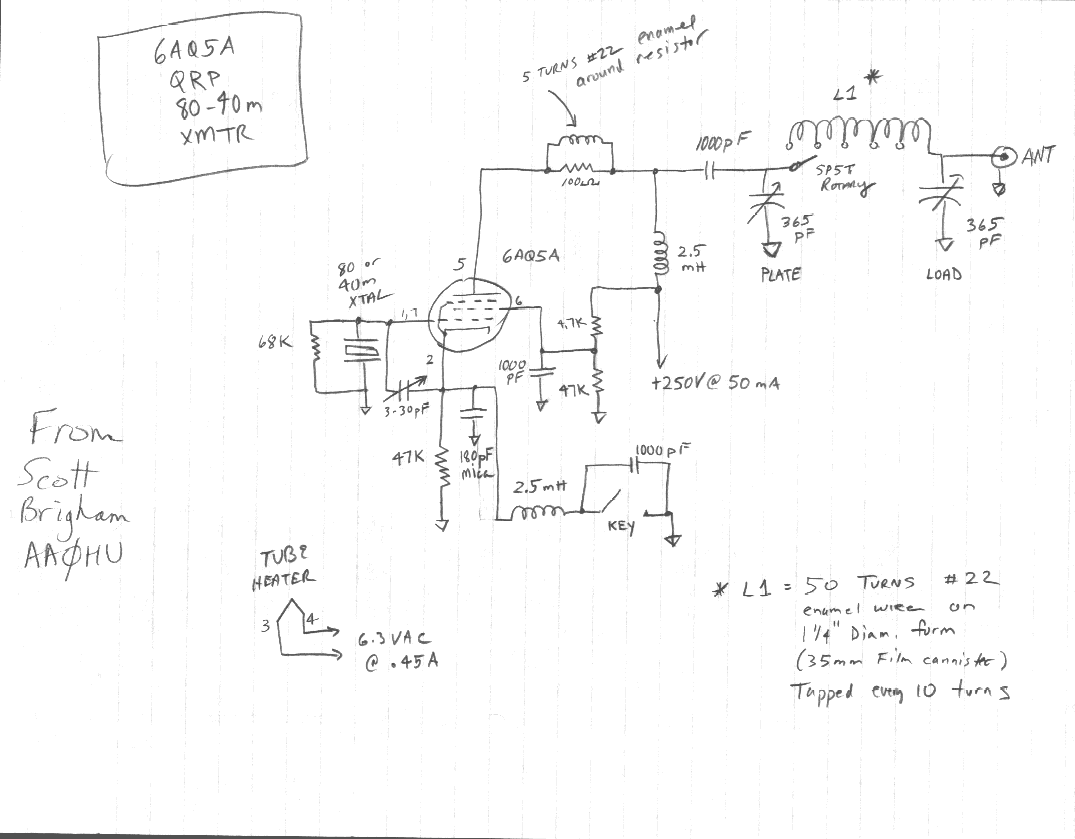 6AQ5A
QRP
80-40m
XMTR
5 TURNS #22 enamel
around resistor
100Ω
1000pF
L1 *
SP5T
Rotary
ANT
365
PF
PLATE
365
PF
LOAD
2.5
mH
80 or
40m
XTAL
5
6AQ5A
1,7
6
2
68K
3-30pF
1000
PF
4.7K
47K
+250V @ 50 mA
47K
180pF
mica
2.5mH
1000pF
KEY
From
Scott
Brigham
AAØHU
TUBE
HEATER
3
4
6.3 VAC
@ .45A
* L1 = 50 TURNS #22
enamel wire on
1 1/4" Diam. form
(35mm Film cannister)
Tapped every 10 turns